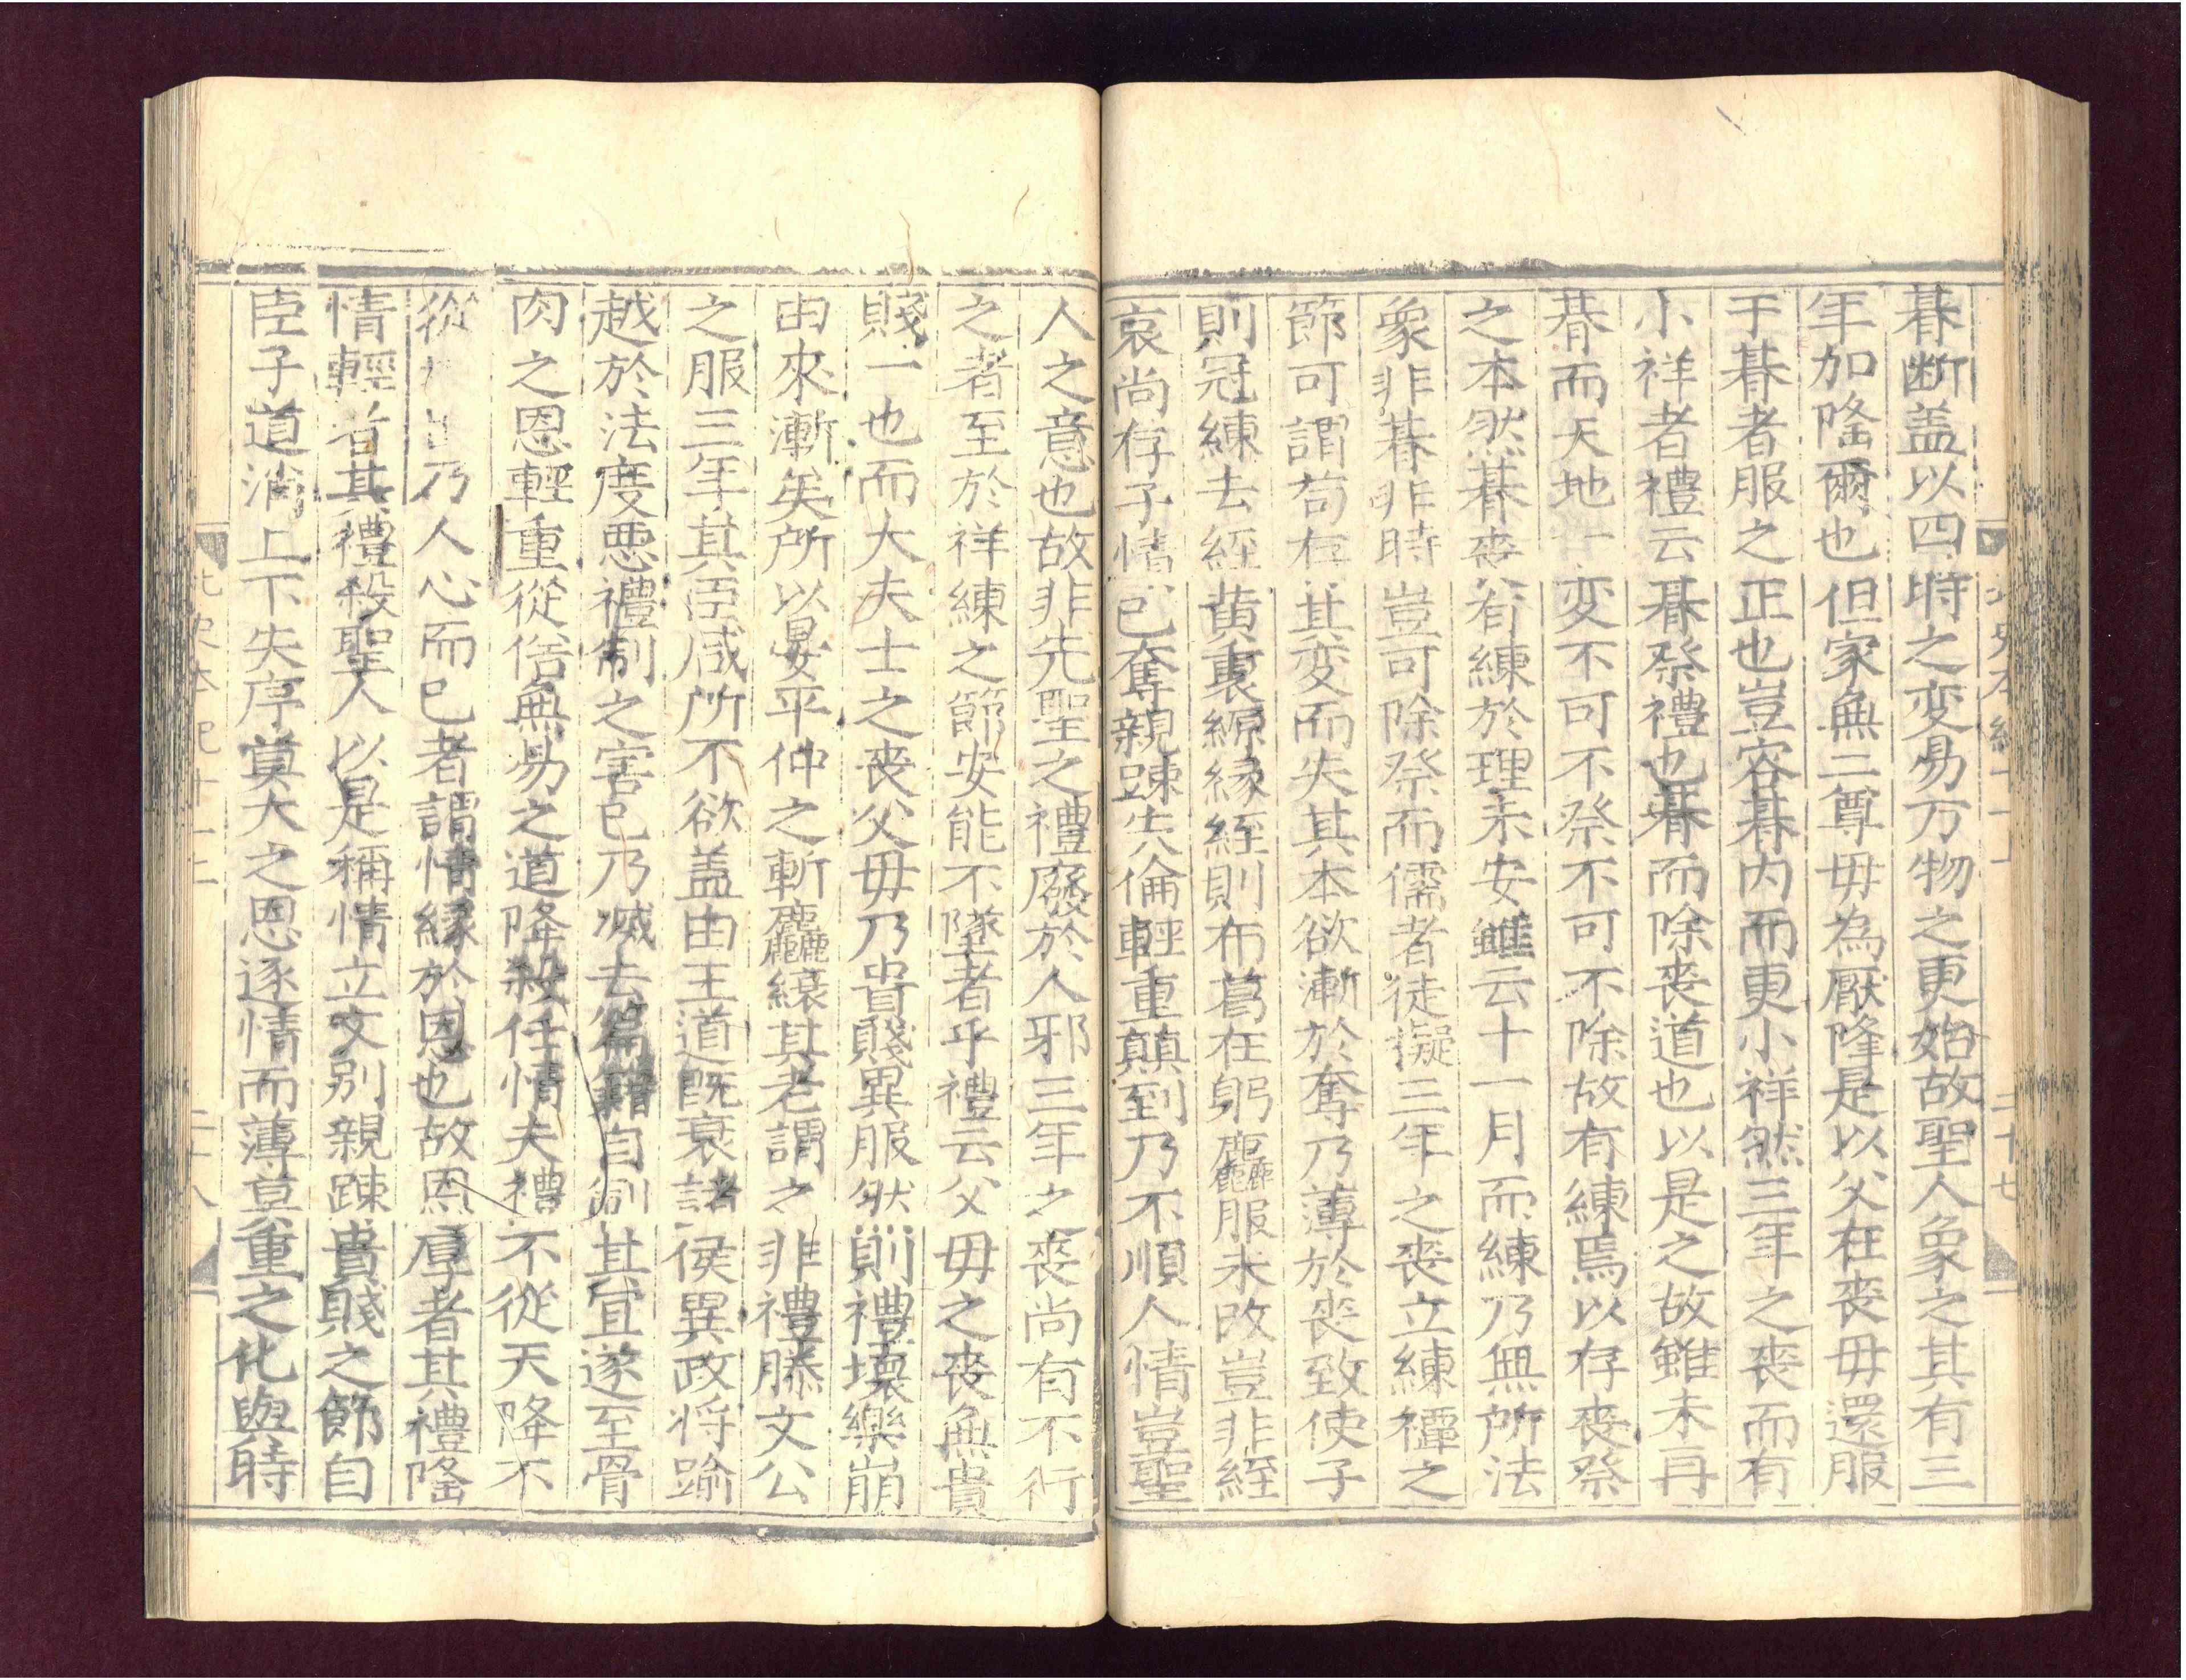 朞断盖以四時之変易万物之更始故聖人象之其有三
年加隆爾也但家無二尊毋為厭降是以父在喪毋還服
于朞者服之正也豈容朞内而更小祥然三年之喪而有
小祥者禮云朞祭禮也朞而除喪道也以是之故雖未再
朞而天地一変不可不祭不可不除故有練焉以存喪祭
之本然朞喪有練於理未安雖云十一月而練乃無所法
象非朞非時豈可除祭而儒者徒擬三年之喪立練禫之
節可謂苟存其変而失其本欲漸於奪乃薄於喪致使子
則冠練去絰黄裏縓緣絰則布葛在躬麤服未改豈非絰
哀尚存子情已奪親踈失倫輕重顛到乃不順人情豈聖
北史本紀十一上
二十七
人之意也故非先聖之禮廢於人邪三年之喪尚有不行
之者至於祥練之節安能不墜者乎禮云父毋之喪無貴
賤一也而大夫士之喪父毋乃貴賤異服然則禮壞樂崩
由來漸矣所以晏平仲之斬麤縗其老謂之非禮滕文公
之服三年其臣咸所不欲盖由王道既衰諸侯異政将踰
越於法度悪禮制之害已乃滅去篇籍自制其宜遂至骨
肉之恩輕重從俗無易之道降殺任情夫禮不從天降不
從地出乃人心而已者謂情緣於恩也故恩厚者其禮隆
情輕者其禮殺聖人以是稱情立文别親踈貴賤之節自
臣子道消上下失序莫大之恩逐情而薄莫重之化與時
北史本紀十一上
二十八